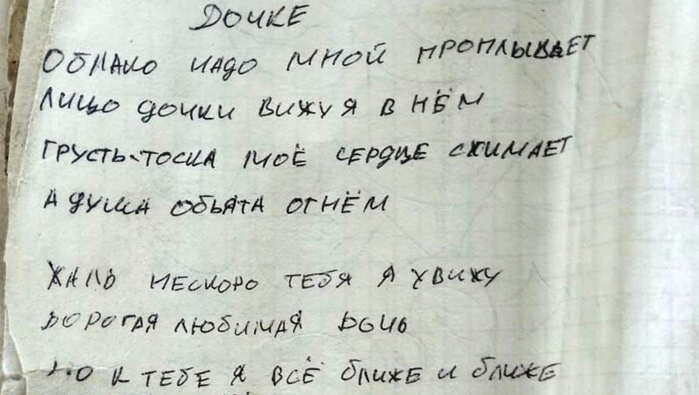 ДОЧКЕ
ОБЛАКО НАДО МНОЙ ПРОПЛЫВАЕТ
ЛИЦО ДОЧКИ ВИЖУ Я В НЁМ
ГРУСТЬ-ТОСКА МОЁ СЕРДЦЕ СЖИМАЕТ
А ДУША ОБЬЯТА ОГНЁМ
ЖАЛЬ НЕСКОРО ТЕБЯ Я УВИЖУ
ДОРОГАЯ ЛЮБИМАЯ ДОЧЬ
НО К ТЕБЕ Я ВСЁ БЛИЖЕ И БЛИЖЕ